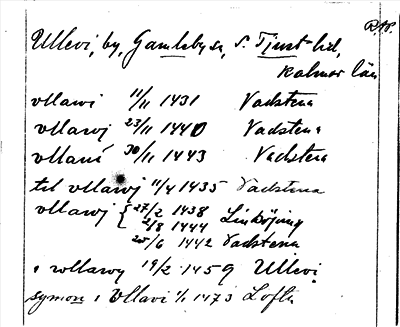 R.A.P.
Ullevi, by, Gamleby sn, S. Tjust hd,
Kalmar län
vllawi 11/11 1431 Vadstena
vllawj 23/11 1440 Vadstena
vllaui 30/11 1443 Vadstena
til vllawj 11/4 1435 Vadstena
vllawj { 27/2 1438
2/8 1444 Linköping
25/6 1442 Vadstena
i wllawy 19/2 1459 Ullevi
symon i Vllavi 1/1 1473 Lofta